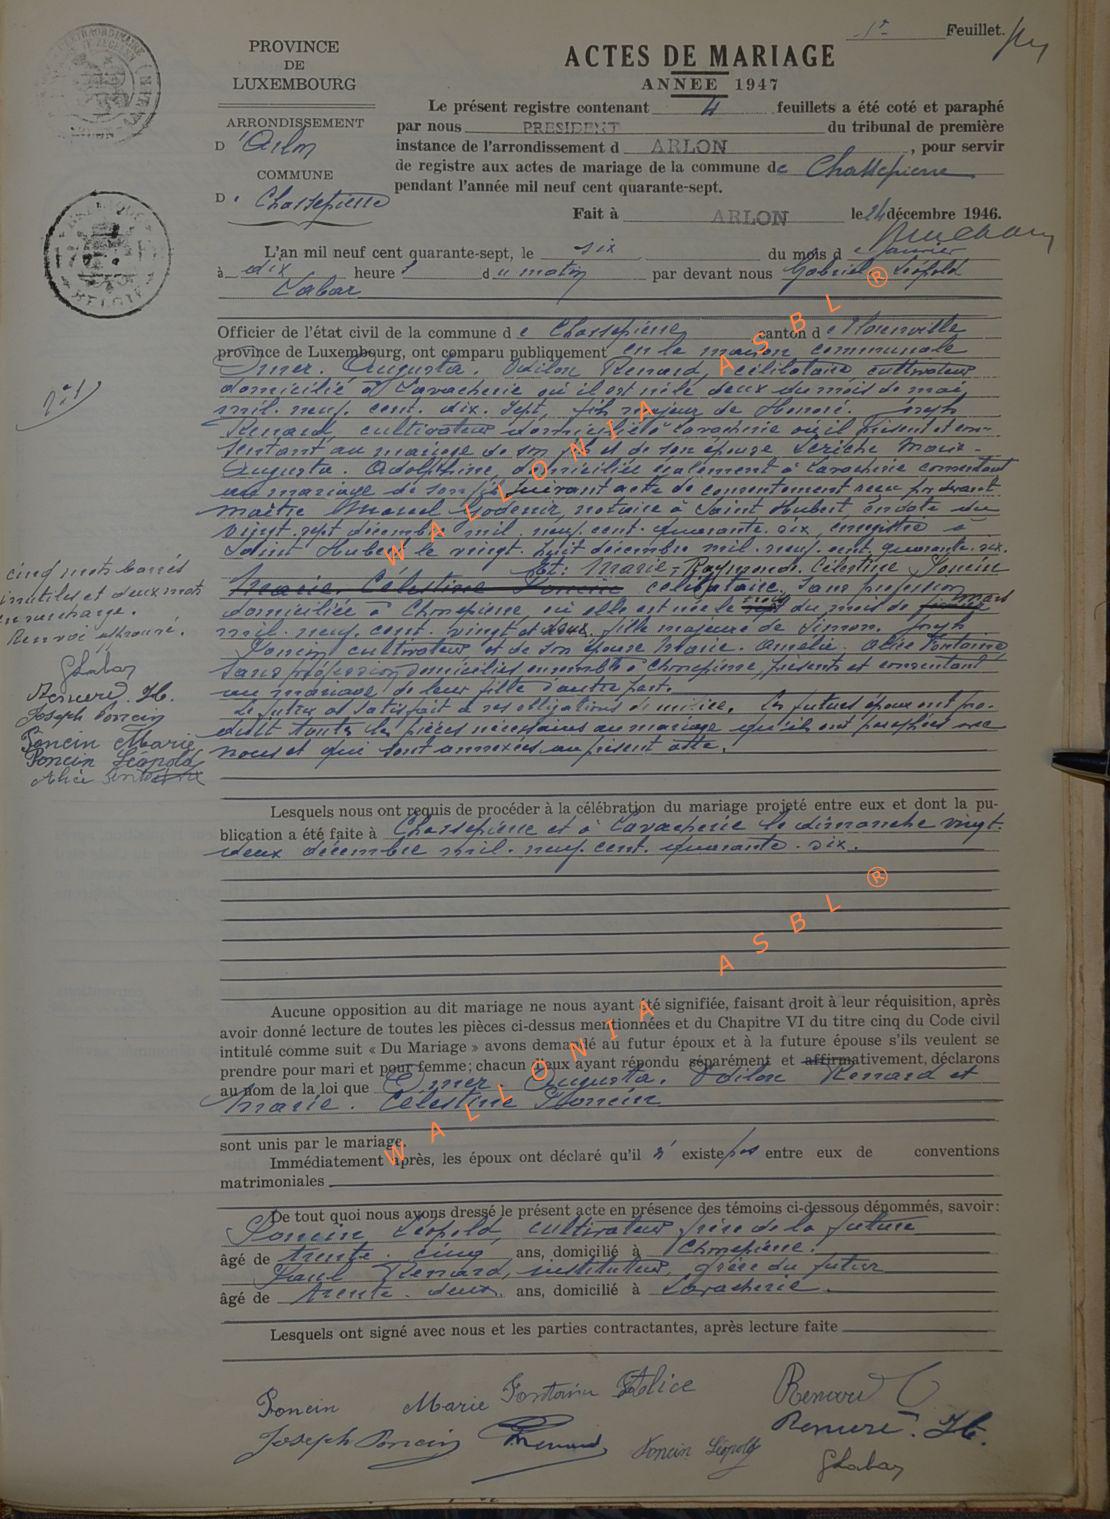 1r Feuillet.
PROVINCE
DE
LUXEMBOURG
ARRONDISSEMENT
D'Arlon
COMMUNE
D. Chassepierre
ACTES DE MARIAGE
ANNEE 1947
Le présent registre contenant 4 feuillets a été coté et paraphé
par nous PRESIDENT du tribunal de première
instance de l'arrondissement d ARLON, pour servir
de registre aux actes de mariage de la commune de Chassepierre
pendant l'année mil neuf cent quarante-sept.
Fait à ARLON le 24 décembre 1946.
L'an mil neuf cent quarante-sept, le six du mois de janvier
à dix heures du matin par devant nous Gabriel Léopold
Labar
Officier de l'état civil de la commune de Chassepierre canton de Florenville
province de Luxembourg, ont comparu publiquement en la maison communale
Omer. Augusta. Odilon Renard, célibataire cultivateur
domicilié à Lavacherie où il est né le deux du mois de mai
mil. neuf. cent. dix. sept, fils majeur de Honoré. Joseph
Renard, cultivateur domicilié à Lavacherie où il présent et con-
sentant au mariage de son fils et de son épouse Leriche Marie-
Augusta. Adolphine, domiciliée également à Lavacherie consentant
au mariage de son fils suivant acte de consentement reçu par devant
maître Marcel Lodomez, notaire à Saint Hubert, en date du
vingt. sept décembre mil. neuf. cent. quarante. six, enregistré à
Saint Hubert le vingt. huit décembre mil. neuf. cent. quarante. six.
Et: Marie-Raymonde. Célestine Poncin
Marie. Célestine Poncin célibataire. Sans profession
domiciliée à Chassepierre, où elle est née le du mois de mars
mil. neuf. cent. vingt et deux, fille majeure de Simon. Joseph
Poncin cultivateur et de son épouse Marie. Amélie. Alice Fontaine
sans profession domiciliés ensemble à Chassepierre, présents et consentant
au mariage de leur fille d'autre part.
Le futur a satisfait à ses obligations de milice. Les futurs époux ont pro-
duit toutes les pièces nécessaires au mariage qu'ils ont paraphées avec
nous et qui sont annexées au présent acte.
n° 1
cinq mots barrés
inutiles et deux mots
en surcharge.
Renvoi approuvé.
GLabar
Renard. H.
Joseph Poncin
Poncin Marie
Poncin Léopold
Alice Fontaine
Lesquels nous ont requis de procéder à la célébration du mariage projeté entre eux et dont la pu-
blication a été faite à Chassepierre et à Lavacherie le dimanche vingt.
deux décembre mil. neuf. cent. quarante. six.
Aucune opposition au dit mariage ne nous ayant été signifiée, faisant droit à leur réquisition, après
avoir donné lecture de toutes les pièces ci-dessus mentionnées et du Chapitre VI du titre cinq du Code civil
intitulé comme suit « Du Mariage » avons demandé au futur époux et à la future épouse s'ils veulent se
prendre pour mari et pour femme; chacun d'eux ayant répondu séparément et affirmativement, déclarons
au nom de la loi que Omer. Augusta. Odilon Renard et
Marie. Célestine Poncin
sont unis par le mariage.
Immédiatement après, les époux ont déclaré qu'il n'existe pas entre eux de conventions
matrimoniales
De tout quoi nous avons dressé le présent acte en présence des témoins ci-dessous dénommés, savoir:
Poncin Léopold, cultivateur frère de la future
âgé de trente. cinq ans, domicilié à Chassepierre.
Paul Renard, instituteur, frère du futur
âgé de trente. deux. ans, domicilié à Lavacherie.
Lesquels ont signé avec nous et les parties contractantes, après lecture faite
Poncin Marie Fontaine Alice Renard O
Joseph Poncin PRenard Poncin Léopold Renard. H.
GLabar
WALLONIA ASBL ®
WALLONIA ASBL ®